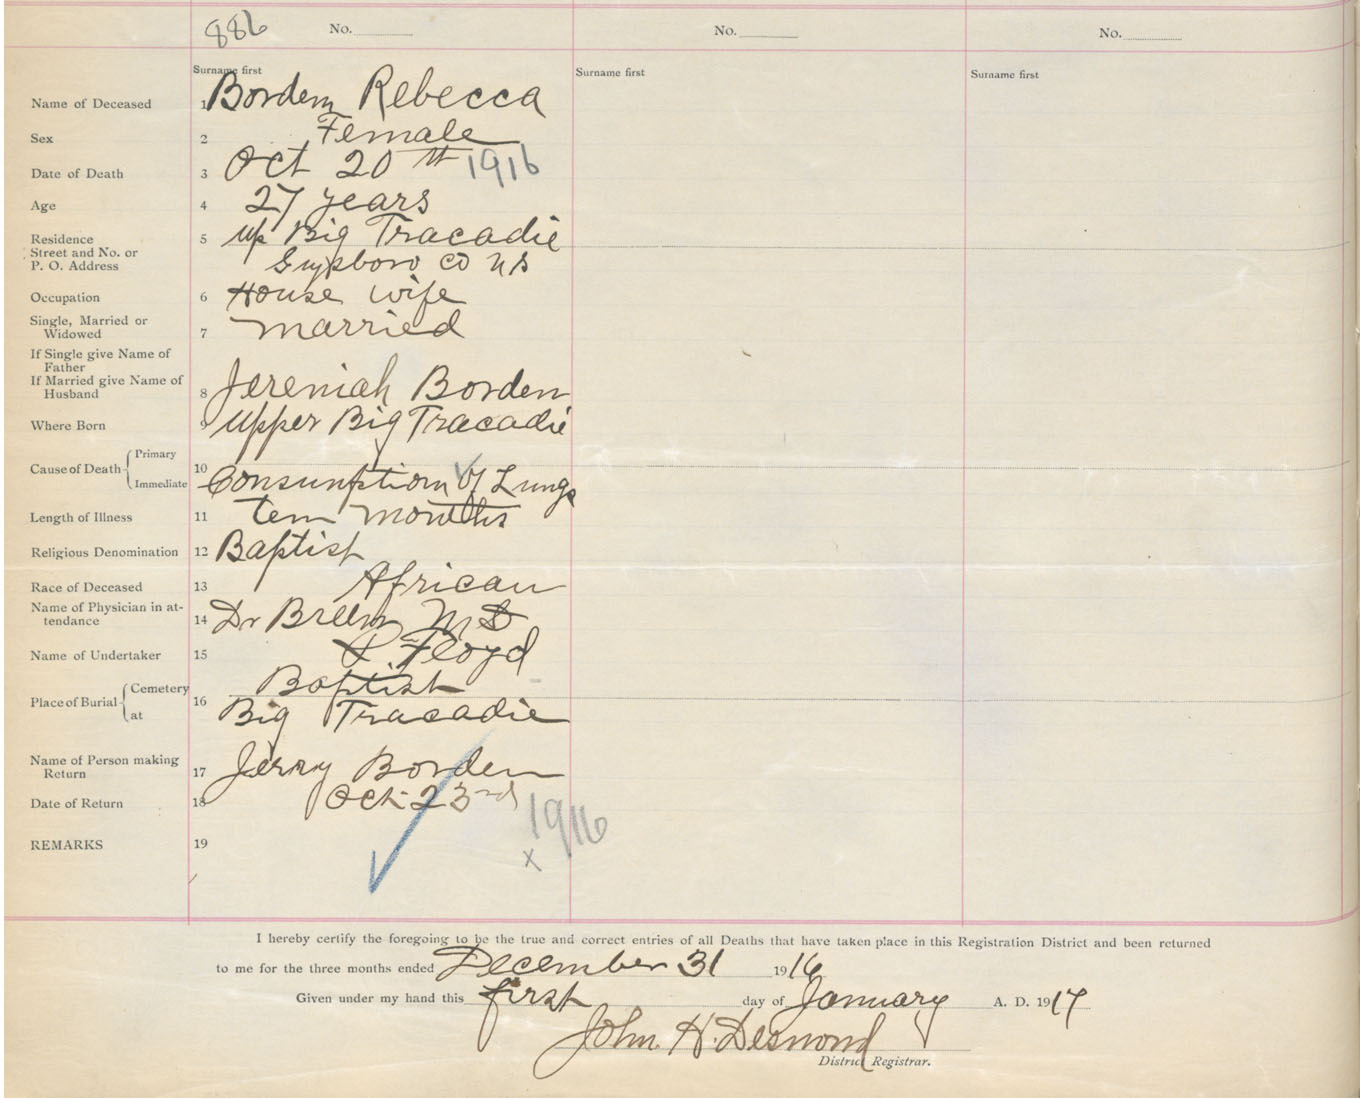 886 No. No. No.
Surname first Surname first Surname first
Name of Deceased 1 Borden Rebecca
Sex 2 Female
Date of Death 3 Oct 20th 1916
Age 4 27 years
Residence Street and No. or P. O. Address 5 up Big Tracadie
Guysboro Co NS
Occupation 6 House wife
Single, Married or Widowed 7 married
If Single give Name of Father
If Married give Name of Husband 8 Jeremiah Borden
Where Born 9 upper Big Tracadie
Cause of Death Primary Immediate 10 Consumption of Lungs
Length of Illness 11 ten months
Religious Denomination 12 Baptist
Race of Deceased 13 African
Name of Physician in attendance 14 Dr Breen M D
Name of Undertaker 15 Floyd
Place of Burial Cemetery 16 Baptist
at Big Tracadie
Name of Person making Return 17 Jerry Borden
Date of Return 18 Oct 23rd 1916
REMARKS 19 x
I hereby certify the foregoing to be the true and correct entries of all Deaths that have taken place in this Registration District and been returned
to me for the three months ended December 31 1916
Given under my hand this first day of January A. D. 1917
John H. Desmond
District Registrar.